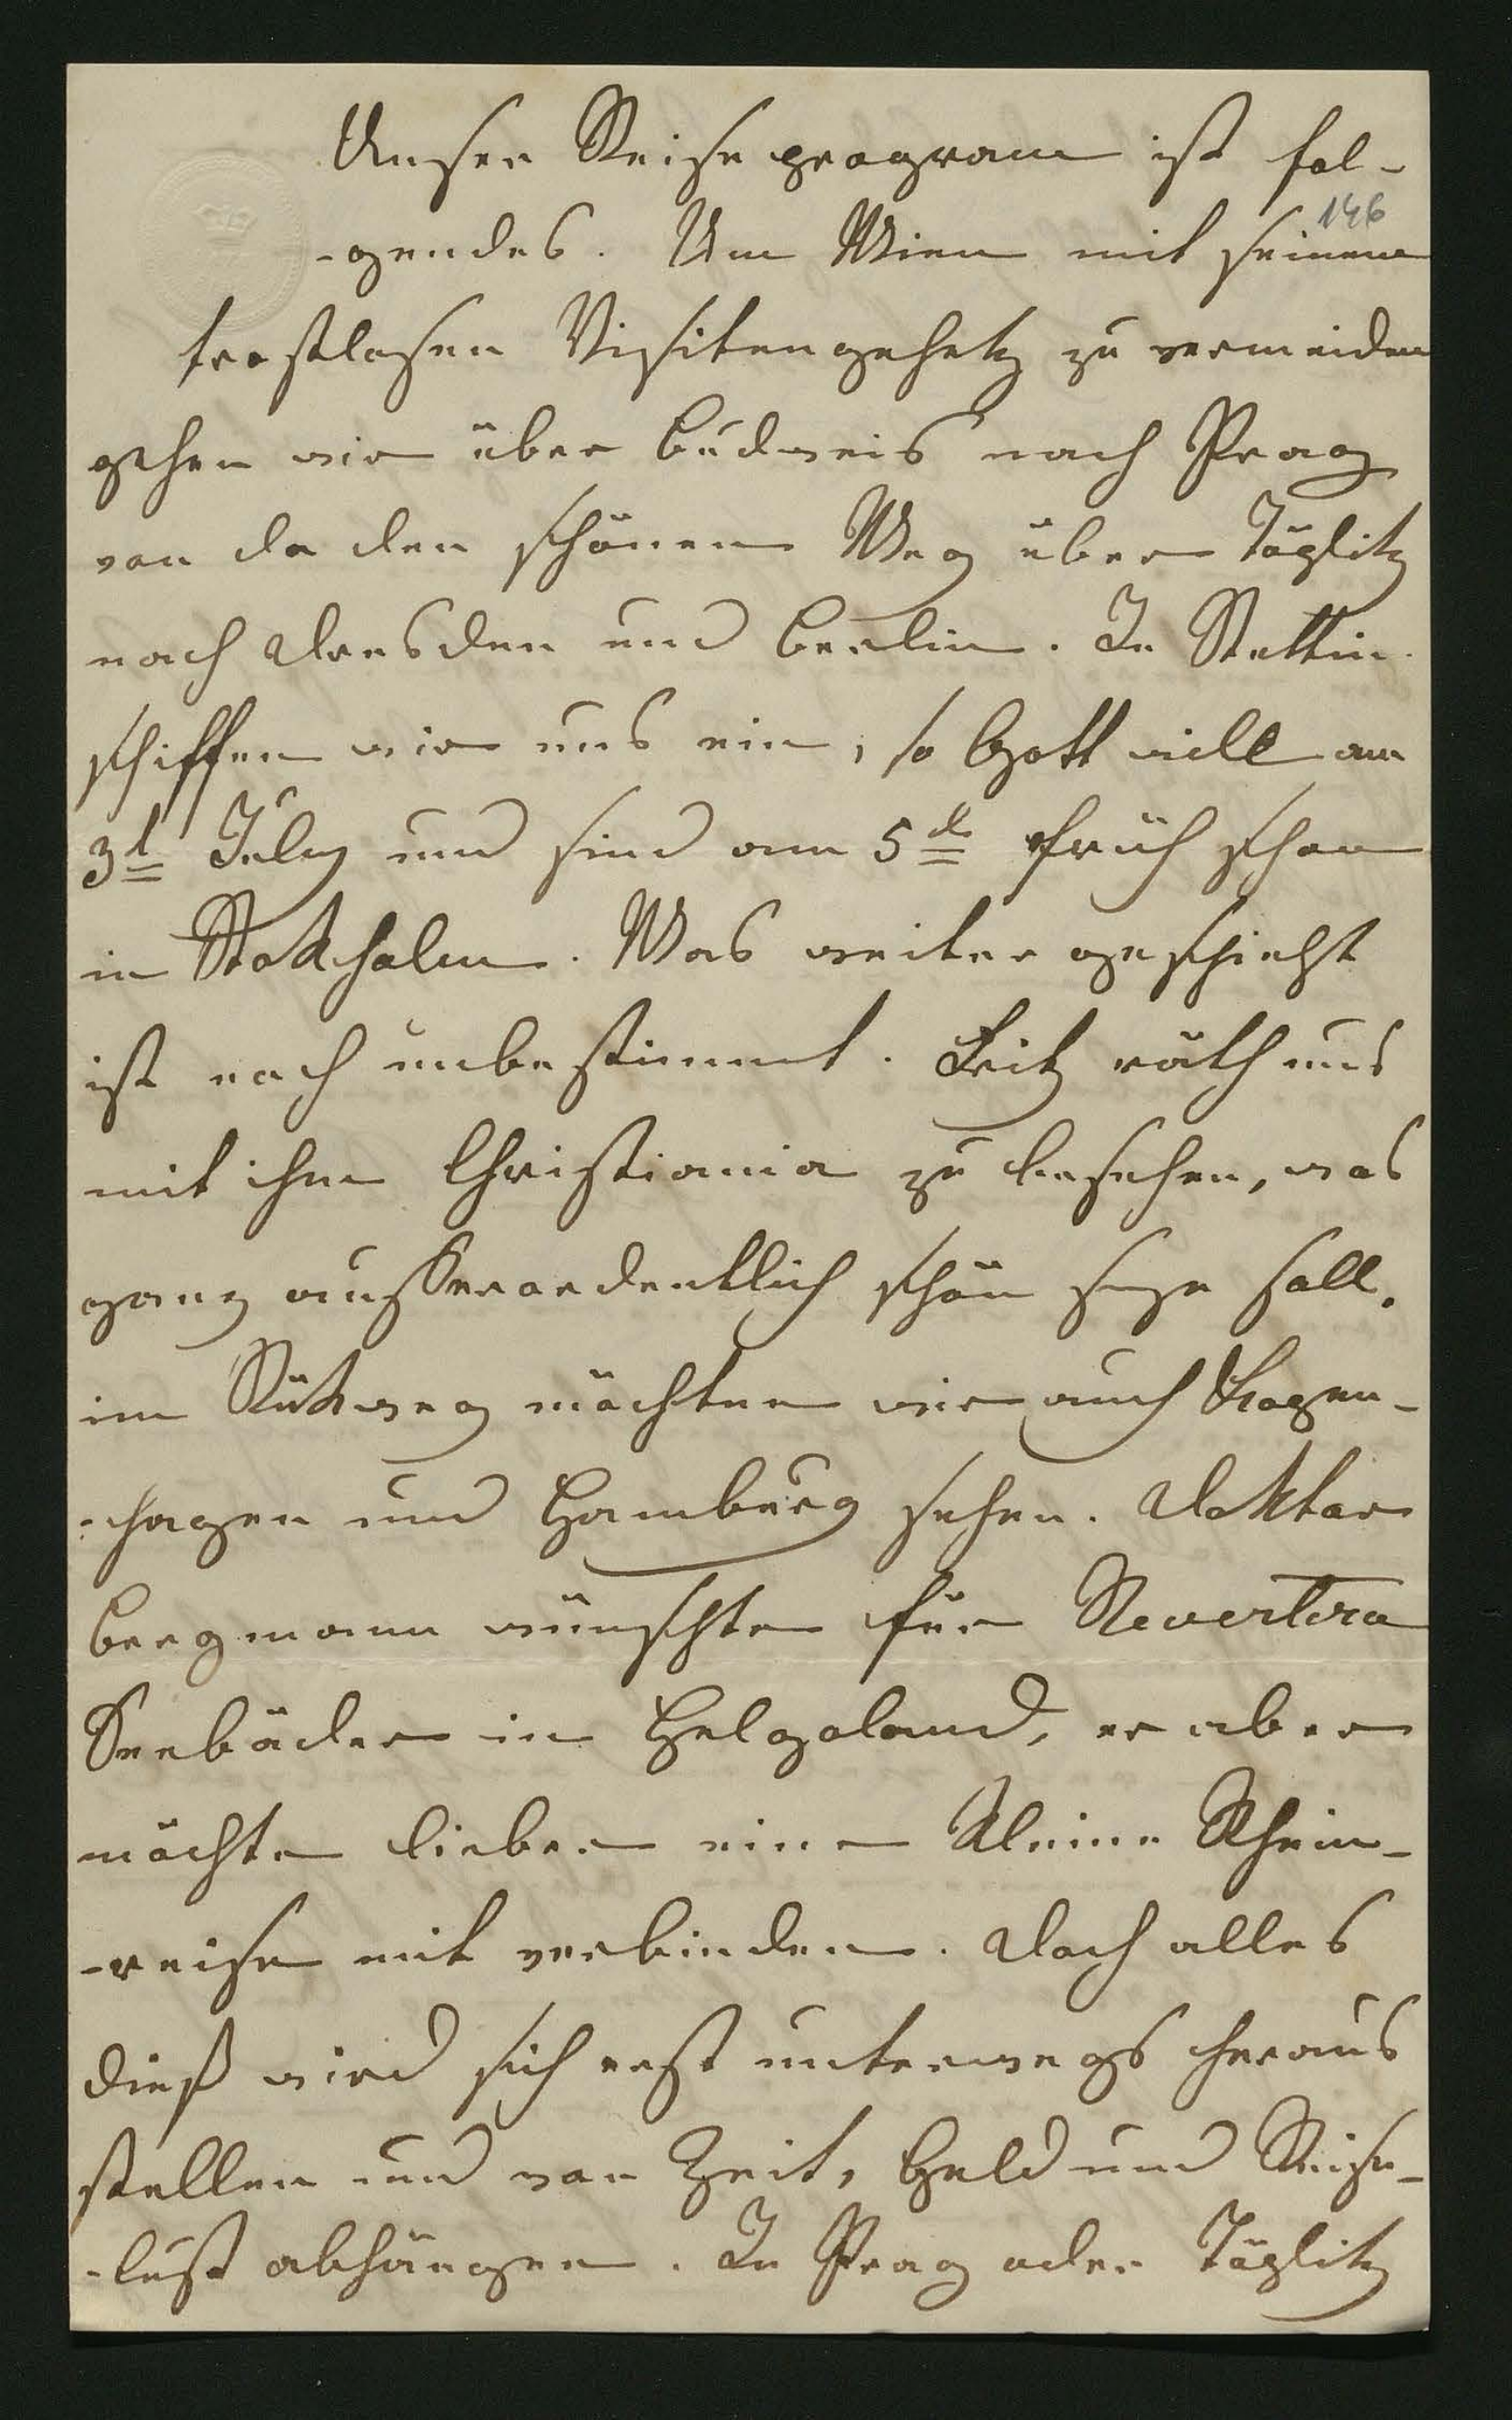 Unser Reiseprogram ist fol-
146
-gendes. Um Wien mit seinem
trostlosen Visitengehetz zu vermeiden
gehen wir über Budweis nach Prag
von da den schönen Weg über Töplitz
nach Dresden und Berlin. In Stettin
schiffen wir uns ein, so Gott will am
3t July und sind am 5t früh schon
in Stokholm. Was weiter geschieht
ist noch unbestimmt. Fritz räth uns
mit ihm Christiania zu besehen, was
ganz ausserordentlich schön seyn soll.
im Rükweg möchten wir auch Kopen-
-hagen und Hamburg sehen. Doktor
Bergmann wünschte für Revertera
Seebäder in Helgoland, er aber
möchte lieber eine kleine Rhein-
-reise mit verbinden. Doch alles
dieß wird sich erst unterwegs heraus
stellen und von Zeit, Geld und Reise-
-lust abhängen. In Prag oder Töplitz